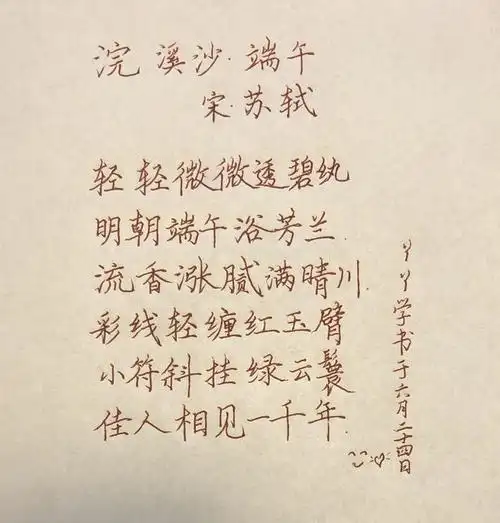 浣溪沙·端午
宋·苏轼
轻轻微微透碧纨
明朝端午浴芳兰.
流香涨腻满晴川.
彩线轻缠红玉臂
小符斜挂绿云鬟
佳人相见一千年.
丫丫学书于六月二十四日